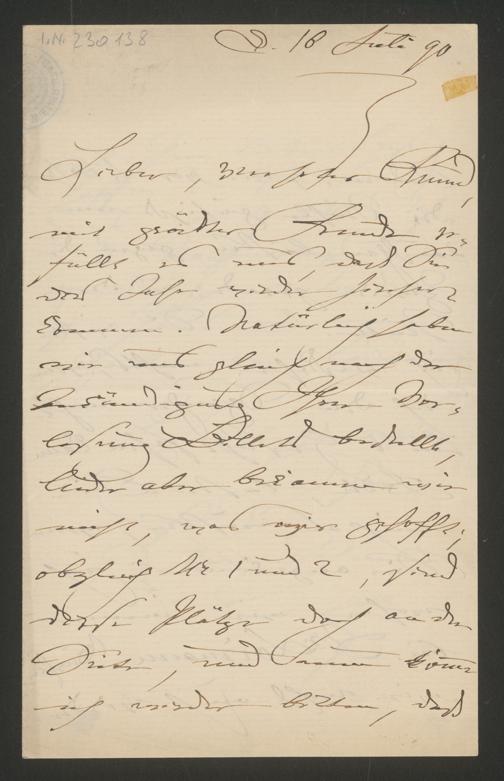 I.N. 230.138
D. 18 Juli 90
Lieber, verehrter Freund,
mit größter Freude er-
füllt es uns, daß Sie
das Jahr wieder hierher
kommen. Natürlich haben
wir uns gleich nach der
Ankündigung Ihrer Vor-
lesung Billets bestellt,
leider aber bekamen wir
nicht, was wir gehofft,
obgleich Nr 1 und 2, sind
diese Plätze doch an der
Seite, und nun komme
ich wieder bitten, daß